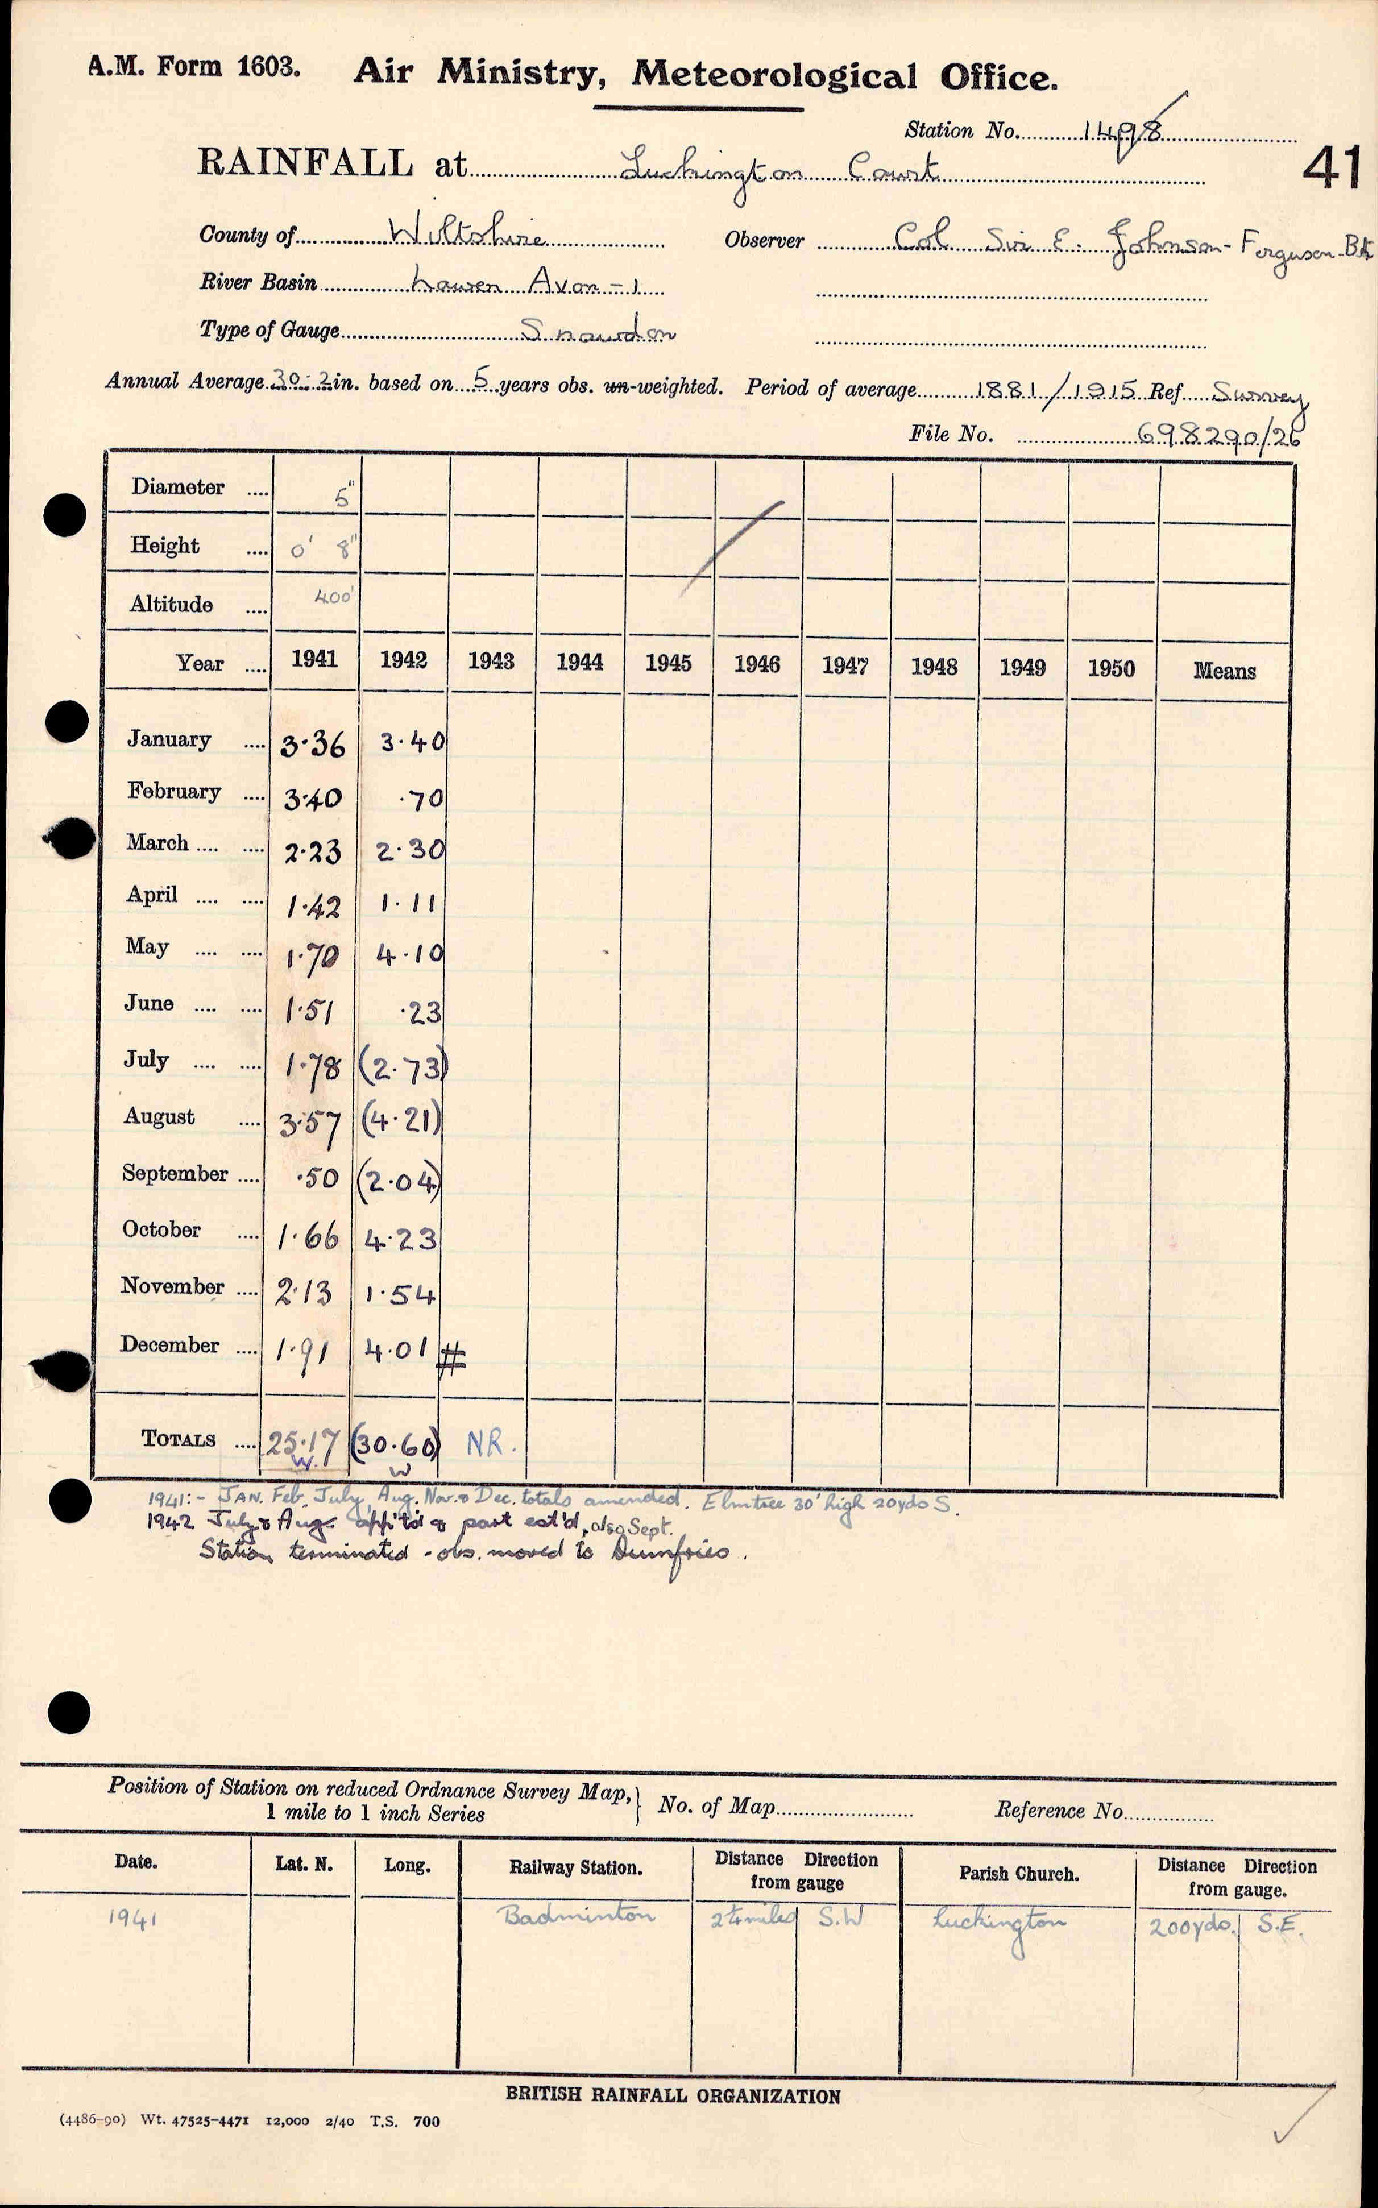 A.M. Form 1603. Air Ministry, Meteorological Office.
Station No. 1498
41
RAINFALL at Luckington Court
County of Wiltshire Observer Col Sir E. Johnson-Ferguson-Bt
River Basin Lower Avon-1
Type of Gauge Snowdon
Annual Average 30.2 in. based on 5 years obs. un-weighted. Period of average 1881/1915 Ref Survey
File No. 698290/26
Diameter .... 5"
Height .... 0' 8"
Altitude .... 400'
Year .... 1941 1942 1943 1944 1945 1946 1947 1948 1949 1950 Means
January .... 3.36 3.40
February .... 3.40 .70
March .... .... 2.23 2.30
April .... .... 1.42 1.11
May .... .... 1.70 4.10
June .... .... 1.51 .23
July .... .... 1.78 (2.73)
August .... 3.57 (4.21)
September .... .50 (2.04)
October .... 1.66 4.23
November .... 2.13 1.54
December .... 1.91 4.01 #
TOTALS .... 25.17 (30.60) NR.
W. W
1941:- JAN. Feb, July, Aug. Nov. & Dec. totals amended. Elmtree 30' high 20yds S.
1942 July & Aug. app't'd & part est'd, also Sept.
Station terminated - obs. moved to Dumfries.
Position of Station on reduced Ordnance Survey Map, 1 mile to 1 inch Series } No. of Map Reference No.
Date. Lat. N. Long. Railway Station. Distance Direction from gauge Parish Church. Distance Direction from gauge.
1941 Badminton 2¼ miles S.W Luckington 200yds. S.E.
BRITISH RAINFALL ORGANIZATION
(4486-90) Wt. 47525-4471 12,000 2/40 T.S. 700